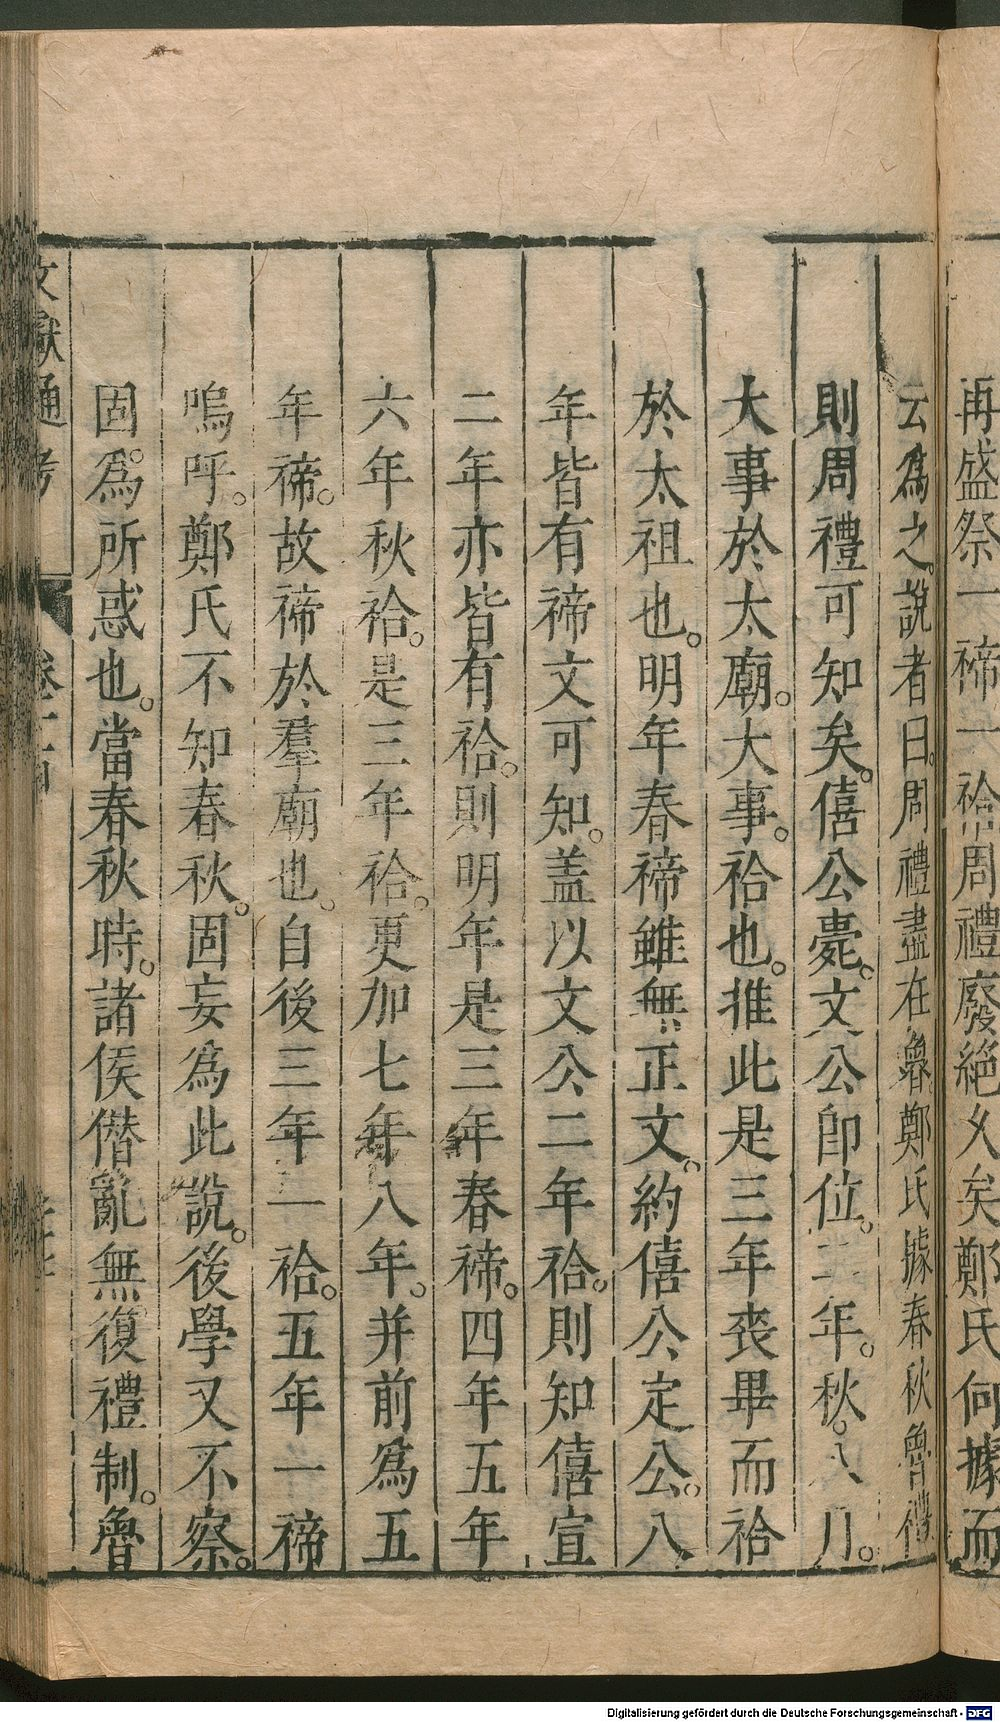 再盛祭一禘一祫周禮廢絕乆矣鄭氏何據而
云爲之。說者曰。周禮盡在魯鄭氏據春秋魯禮
則周禮可知矣。僖公薨。文公卽位。二年。秋。八月。
大事於太廟。大事。祫也。推此是三年喪畢而祫
於太祖也。明年春禘雖無正文。約僖公定公。八
年皆有禘文可知。盖以文公二年祫。則知僖宣
二年亦皆有祫。則明年是三年春禘。四年五年
六年秋祫。是三年祫。更加七年八年。并前爲五
年禘。故禘於羣廟也。自後三年一祫。五年一禘
嗚呼。鄭氏不知春秋。固妄爲此說。後學又不察。
固爲所惑也。當春秋時。諸侯僭亂無復禮制。魯
文獻通考
Digitalisierung gefördert durch die Deutsche Forschungsgemeinschaft - DFG